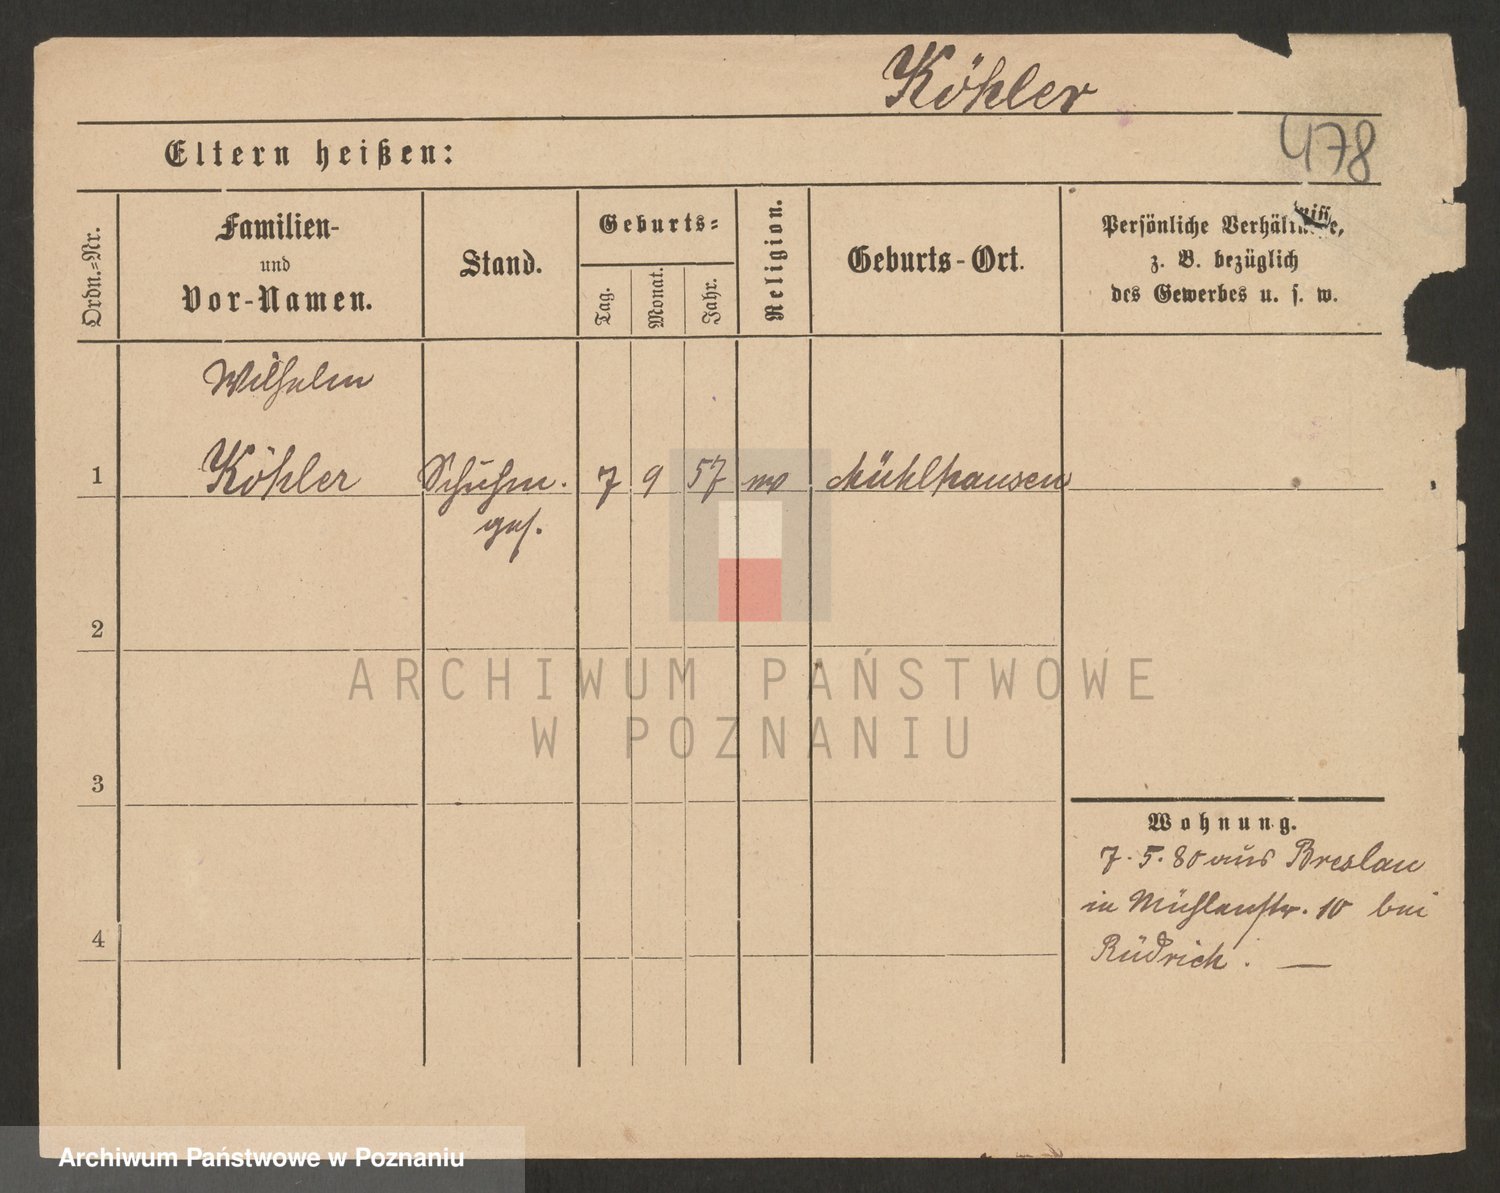 Köhler
478
Eltern heißen:
Ordn.=Nr.
Familien-
und
Vor-Namen.
Stand.
Geburts=
Tag.
Monat.
Jahr.
Religion.
Geburts-Ort.
Persönliche Verhältnisse,
z. B. bezüglich
des Gewerbes u. s. w.
Wilhelm
1 Köhler Schuhm. 7 9 57 Mühlhausen
ges.
2
3
4
Wohnung.
7. 5. 80 aus Breslau
in Mühlenstr. 10 bei
Rüdrich. —
ARCHIWUM PAŃSTWOWE
W POZNANIU
Archiwum Państwowe w Poznaniu